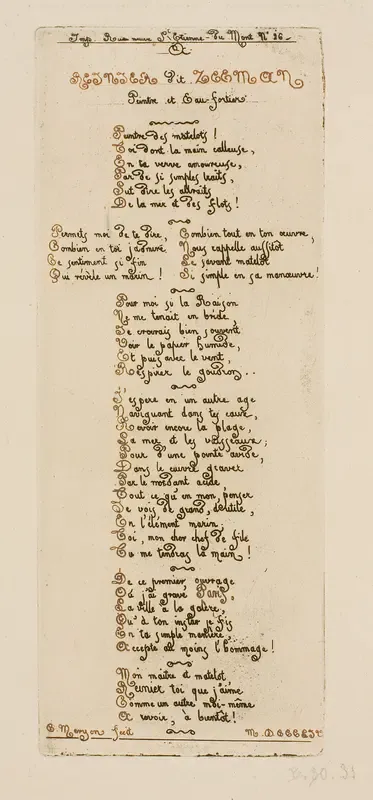 Imp. Rue neuve St Etienne-du-Mont No 26.
A
REINIER dit ZEEMAN
Peintre et Eau-fortier
Peintre des matelots !
Toi dont la main calleuse,
En ta verve amoureuse,
Par de si simples traits,
Sut dire les attraits
De la mer et des flots !
Permets moi de te dire,
Combien en toi j'admire
Ce sentiment si fin
Qui révèle un marin !
Combien tout en ton œuvre,
Nous rappelle aussitot
Le savant matelot
Si simple en sa manœuvre !
Pour moi si la Raison
Ne me tenait en bride,
Je croirais bien souvent
Voir le papier humide,
Et puis avec le vent,
Respirer le goudron . .
J'espere en un autre age
Naviguant dans tes eaux,
Revoir encore la plage,
La mer et les vaisseaux ;
Pour d'une pointe avide,
Dans le cuivre graver
Par le mordant acide
Tout ce qu'en mon penser
Je vois de grand, d'utile,
En l'élément marin,
Toi, mon cher chef de file
Tu me tendras la main !
De ce premier ouvrage
Où j'ai gravé Paris,
La ville à la galère,
Qu'à ton instar je fis
En ta simple manière
Accepte au moins l'hommage !
Mon maitre et matelot
Reinier toi que j'aime
Comme un autre moi-même
A revoir, à bientot !
C. Meryon fecit
M. DCCCLIV